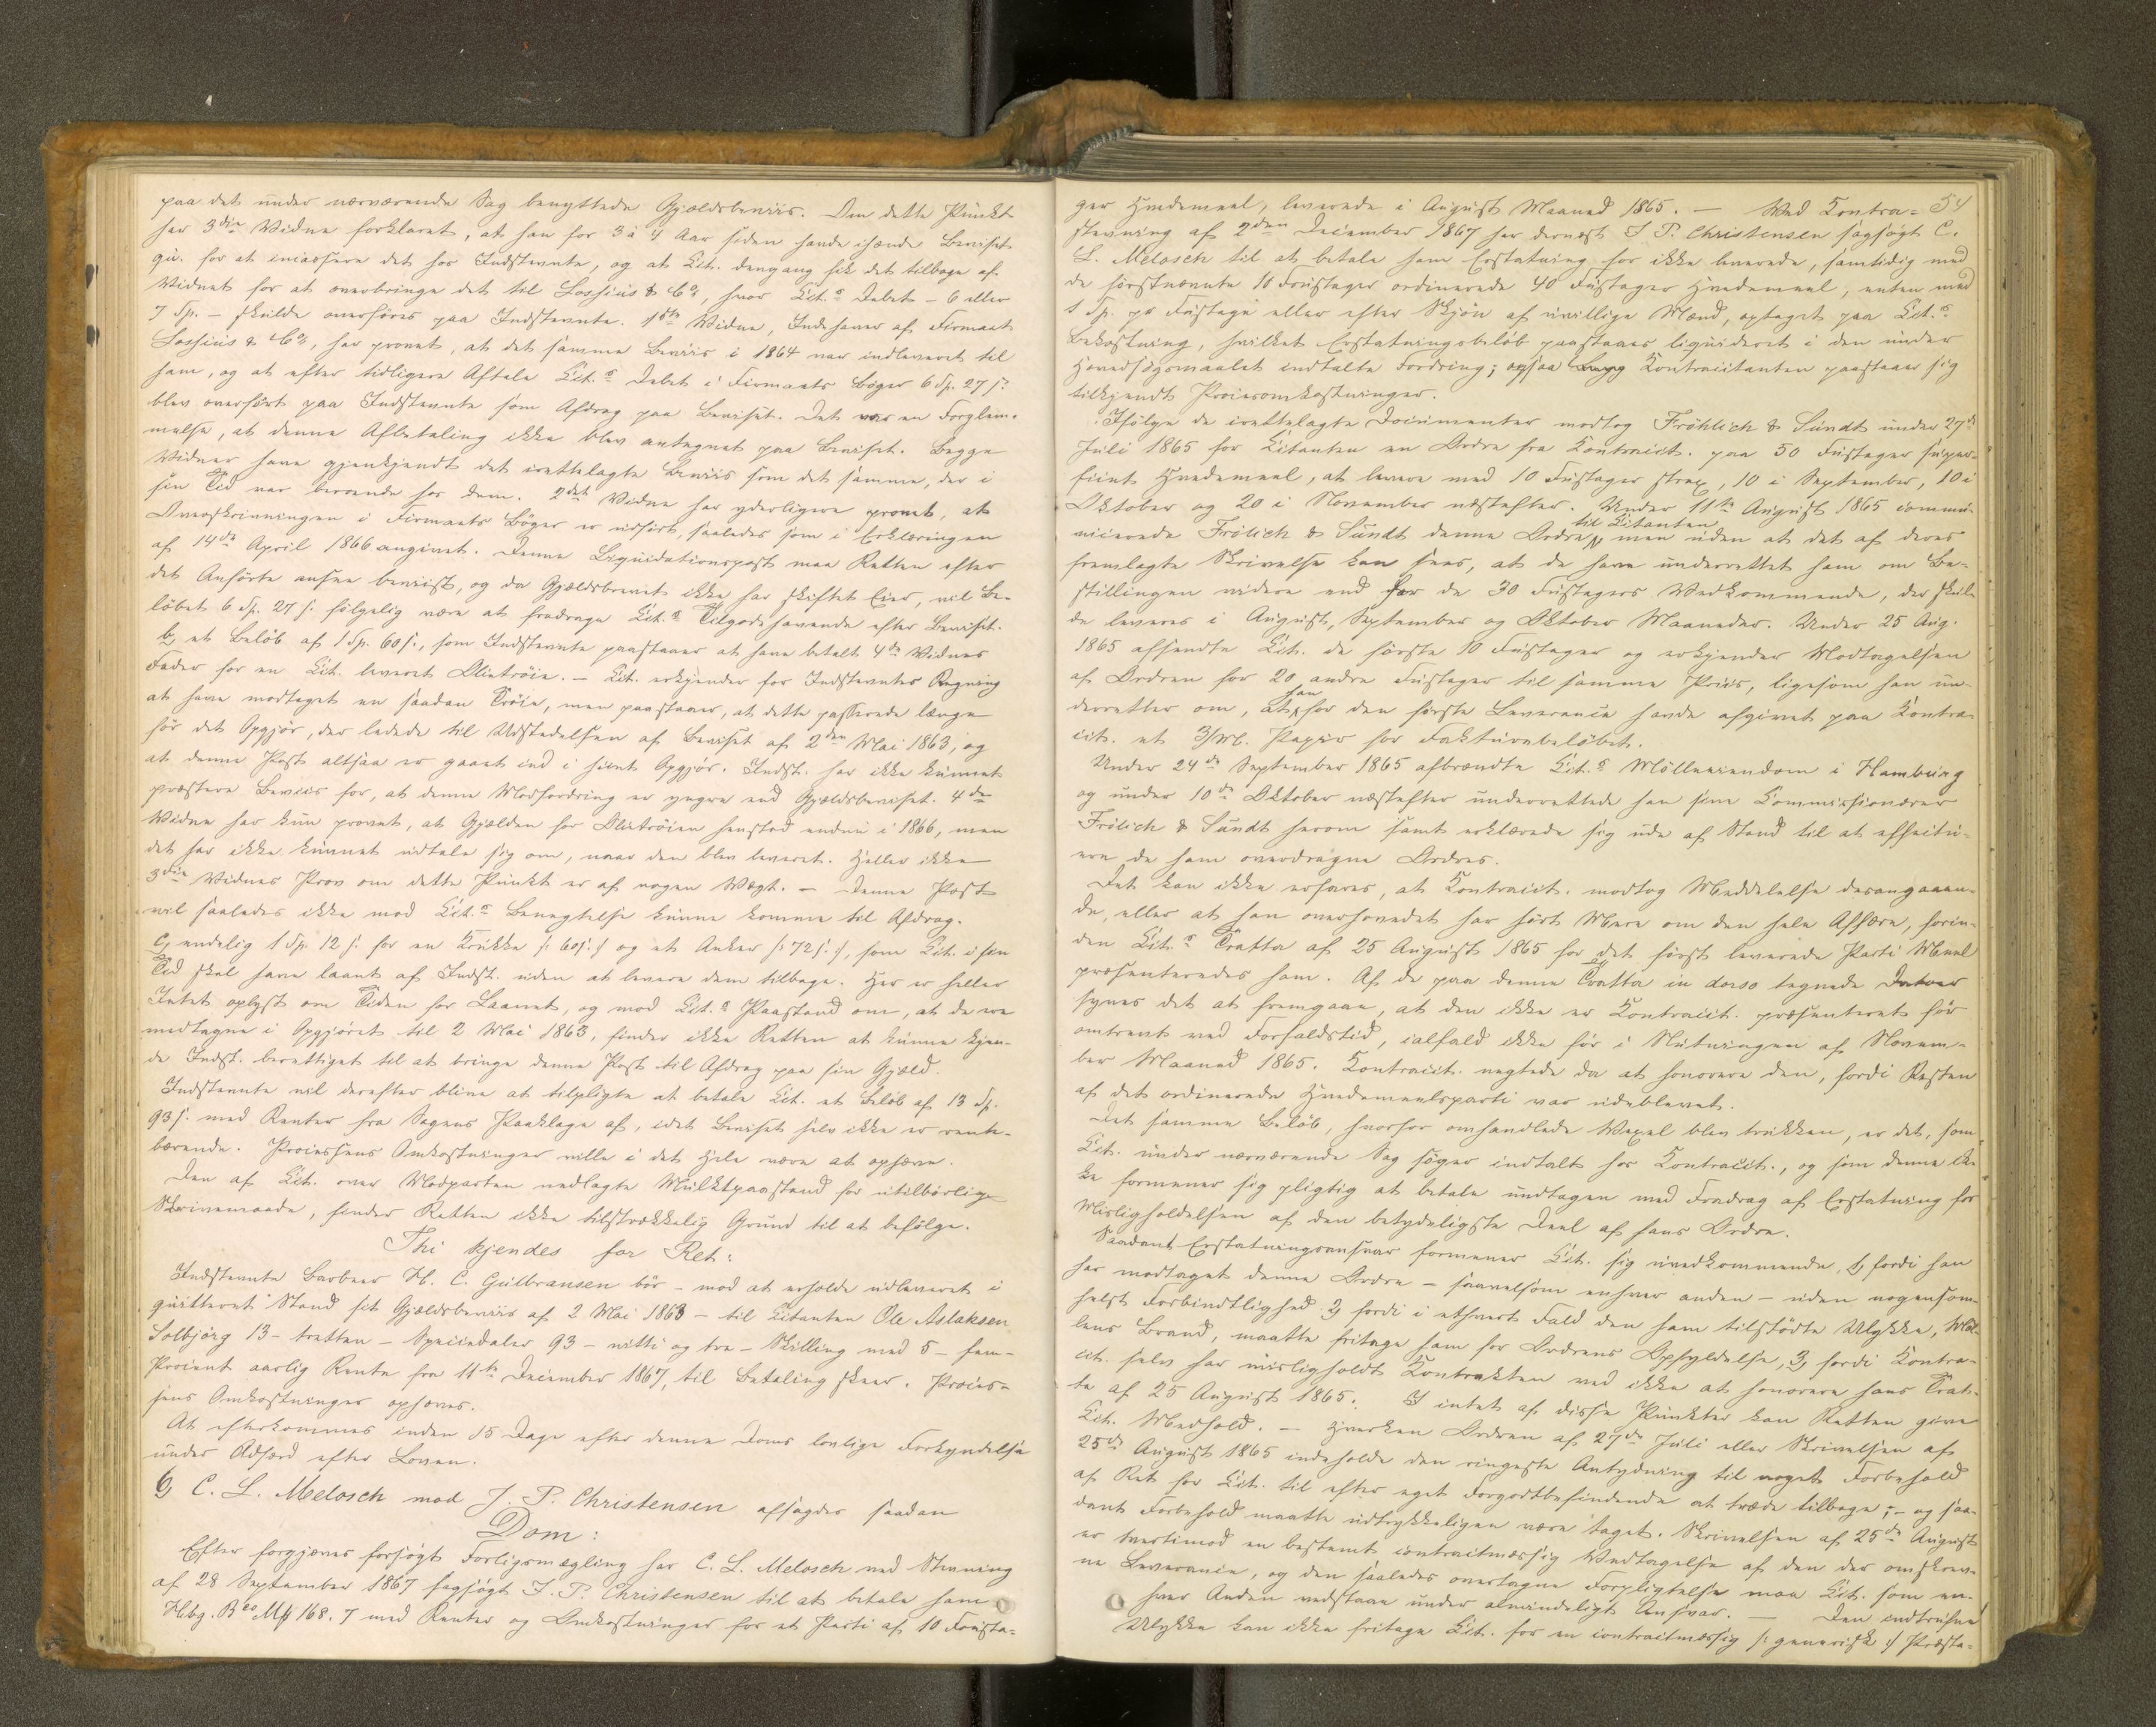 paa det under nærværende Sag benyttede Gjældsbeviis. Om dette Punkt
har 3die Vidne forklaret, at han for 3 à 4 Aar siden havde ihænde Beviset
qu. for at incassere det hos Indstevnte, og at Cit. dengang fik det tilbage af
Vidnet for at overbringe det til Lossius & Co, hvor Cit.s Debet - 6 eller
7 Sp. - skulde overføres paa Indstevnte. 1ste Vidne, Indehaver af Firmaet
Lossius & Co, har provet, at det samme Beviis i 1864 var indleveret til
ham, og at efter tidligere Aftale Cit.s Debet i Firmaets Bøger 6 Sp. 27 s.
blev overført paa Indstevnte som Afdrag paa Beviset. Det var en Forglem-
melse, at denne Afbetaling ikke blev antegnet paa Beviset. Begge
Vidner have gjenkjendt det irettelagte Beviis som det samme, der i
sin Tid var beroende hos dem. 2det Vidne har yderligere provet, at
Overskrivningen i Firmaets Bøger er udført, saaledes som i Erklæringen
af 14de April 1866 angivet. Denne Liquidationspost maa Retten efter
det Anførte ansee beviist, og da Gjældsbrevet ikke har skiftet Eier, vil Be-
løbet 6 Sp. 27 s. følgelig være at fradrage Cit.s Tilgodehavende efter Beviset.
b, et Beløb af 1 Sp. 60 s., som Indstevnte paastaaer at have betalt 4de Vidnes
Fader for en Cit. leveret Olietrøie. - Cit. erkjender for Indstevntes Regning
at have modtaget en saadan Trøie, men paastaaer, at dette passerede længe
før det Opgjør, der ledede til Udstedelsen af Beviset af 2den Mai 1863, og
at denne Post altsaa er gaaet ind i hiint Opgjør. Indst. har ikke kunnet
præstere Beviis for, at denne Modfordring er yngre end Gjældsbeviset. 4de
Vidne har kun provet, at Gjælden for Olietrøien henstod endnu i 1866, men
det har ikke kunnet udtale sig om, naar den blev leveret. Heller ikke
3die Vidnes Prov om dette Punkt er af nogen Vægt. - Denne Post
vil saaledes ikke mod Cit.s Benegtelse kunne komme til Afdrag.
c, endelig 1 Sp. 12 s. for en Krukke /: 60 s. :/ og et Anker /: 72 s. :/, som Cit. i sin
Tid skal have laant af Indst. uden at levere dem tilbage. Her er heller
Intet oplyst om Tiden for Laanet, og mod Cit.s Paastand om, at de ere
medtagne i Opgjøret til 2 Mai 1863, finder ikke Retten at kunne kjen-
de Indst. berettiget til at bringe denne Post til Afdrag paa sin Gjæld.
Indstevnte vil derefter blive at tilpligte at betale Cit. et Beløb af 13 Sp.
93 s. med Renter fra Sagens Paaklage af, idet Beviset selv ikke er rente-
bærende. Processens Omkostninger ville i det Hele være at ophæve.
Den af Cit. over Modparten nedlagte Mulktpaastand for utilbørlig
Skrivemaade, finder Retten ikke tilstrækkelig Grund til at befølge.
Thi kjendes for Ret:
Indstevnte Barbeer H. C. Gulbransen bør - mod at erholde udleveret i
quitteret Stand sit Gjældsbeviis af 2 Mai 1863 - til Citanten Ole Aslaksen
Solbjørg 13 - tretten - Speciedaler 93 - nitti og tre - Skilling med 5 - fem -
Procent aarlig Rente fra 11te December 1867, til Betaling skeer. Proces-
sens Omkostninger ophæves.
At efterkommes inden 15 Dage efter denne Doms lovlige Forkyndelse
under Adfærd efter Loven.
6, C. L. Melosch mod J. P. Christensen afsagdes saadan
Dom:
Efter forgjæves forsøgt Forligsmægling har C. L. Melosch ved Stevning
af 28 September 1867 sagsøgt J. P. Christensen til at betale ham
Hbg. Bco Mk 168. 7 med Renter og Omkostninger for et Parti af 10 Fousta-
54
ger Hvedemeel, leverede i August Maaned 1865. - Ved Kontra-
stevning af 2den December 1867 har dernæst J. P. Christensen sagsøgt C.
L. Melosch til at betale ham Erstatning for ikke leverede, samtidig med
de førstnævnte 10 Foustager ordinerede 40 Fustager Hvedemeel, enten med
1 Sp. pr Fustage eller efter Skjøn af uvillige Mænd, optaget paa Cit.s
Bekostning, hvilket Erstatningsbeløb paastaaes liquideret i den under
Hovedsøgsmaalet indtalte Fordring; ogsaa Contracitanten paastaaer sig
tilkjendt Procesomkostninger.
Ifølge de irettelagte Documenter modtog Frölich & Sundt under 27de
Juli 1865 for Citanten en Ordre fra Kontracit. paa 50 Fustager super-
fiint Hvedemeel, at levere med 10 Fustager strax, 10 i September, 10 i
Oktober og 20 i November næstefter. Under 11te August 1865 commu-
nicerede Frölich & Sundt denne Ordre til Citanten, men uden at det af deres
fremlagte Skrivelse kan sees, at de have underrettet ham om Be-
stillingen videre end for de 30 Fustagers Vedkommende, der skul-
de leveres i August, September og Oktober Maaneder. Under 25 Aug.
1865 afsendte Cit. de første 10 Fustager og erkjender Modtagelsen
af Ordren for 20 andre Fustager til samme Priis, ligesom han un-
derretter om, at han for den første Leverance havde afgivet paa Kontra-
cit. et 3/Md. Papir for Fakturabeløbet.
Under 24de September 1865 afbrændte Cit.s Mølleeiendom i Hamburg
og under 10de Oktober næstefter underrettede han sine Commissionærer
Frölich & Sundt herom samt erklærede sig ude af Stand til at effectu-
ere de ham overdragne Ordres.
Det kan ikke erfares, at Kontracit. modtog Meddelelse desangaaen-
de, eller at han overhovedet har hørt Mere om den hele Affære, forin-
den Cit.s Tratta af 25 August 1865 for det først leverede Parti Meel
præsenteredes ham. Af de paa denne Tratta in dorso tegnede Datoer
synes det at fremgaae, at den ikke er Kontracit. præsenteret før
omtrent ved Forfaldstid, ialfald ikke før i Slutningen af Novem-
ber Maaned 1865. Kontracit. negtede da at honorere den, fordi Resten
af det ordinerede Hvedemeelsparti var udeblevet.
Det samme Beløb, hvorfor omhandlede Vexel blev trukken, er det, som
Cit. under nærværende Sag søger indtalt hos Kontracit., og som denne ik-
ke formener sig pligtig at betale undtagen med Fradrag af Erstatning for
Misligholdelsen af den betydeligste Deel af hans Ordre.
Saadant Erstatningsansvar formener Cit. sig uvedkommende, 1, fordi han
har modtaget denne Ordre - saavelsom enhver anden - uden nogensom-
helst Forbindtlighed 2, fordi i ethvert Fald den ham tilstødte Ulykke, Møl-
lens Brand, maatte fritage ham for Ordrens Opfyldelse, 3, fordi Kontra-
cit. selv har misligholdt Kontrakten ved ikke at honorere hans Trat-
te af 25 August 1865. I intet af disse Punkter kan Retten give
Cit. Medhold. - Hverken Ordren af 27de Juli eller Skrivelsen af
25de August 1865 indeholde den ringeste Antydning til noget Forbehold
af Ret for Cit. til efter eget Forgodtbefindende at træde tilbage; - og saa-
dant Forbehold maatte udtrykkeligen være taget. Skrivelsen af 25de August
er tvertimod en bestemt contractmæssig Vedtagelse af den der omskrev-
ne Leverance, og den saaledes overtagne Forpligtelse maa Cit. som en-
hver Anden vedstaae under almindeligt Ansvar. - Den indtrufne
Ulykke kan ikke fritage Cit. for en contractmæssig /: generisk :/ Præsta-